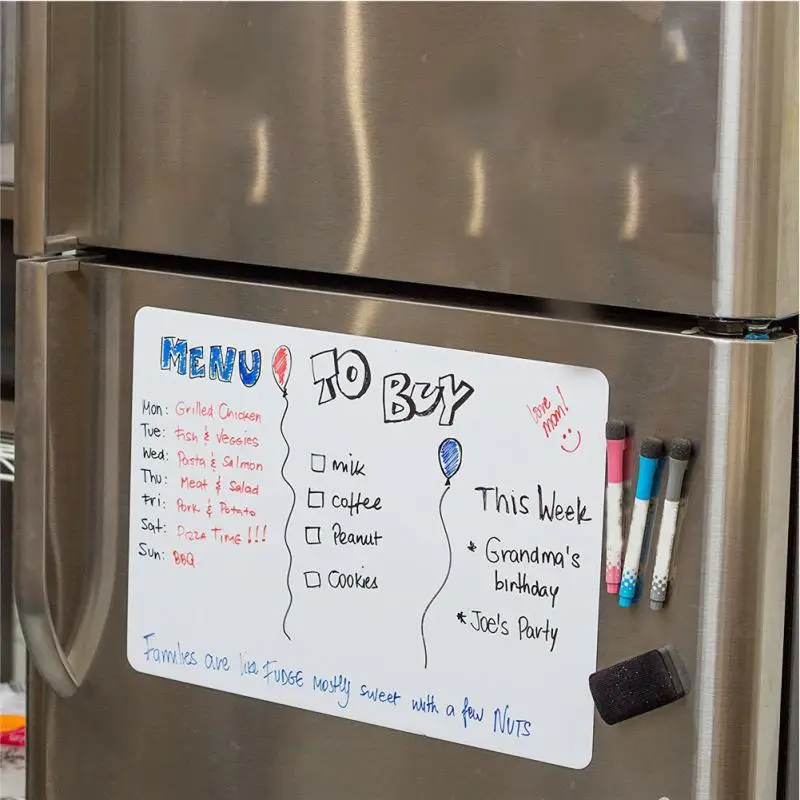 MENU
Mon: Grilled Chicken
Tue: Fish & Veggies
Wed: Pasta & Salmon
Thu: Meat & Salad
Fri: Pork & Potato
Sat: Pizza Time!!!
Sun: BBQ
TO BUY
milk
coffee
Peanut
Cookies
love
mom!
This Week
* Grandma's
birthday
* Joe's Party
Families are like FUDGE mostly sweet with a few NUTS